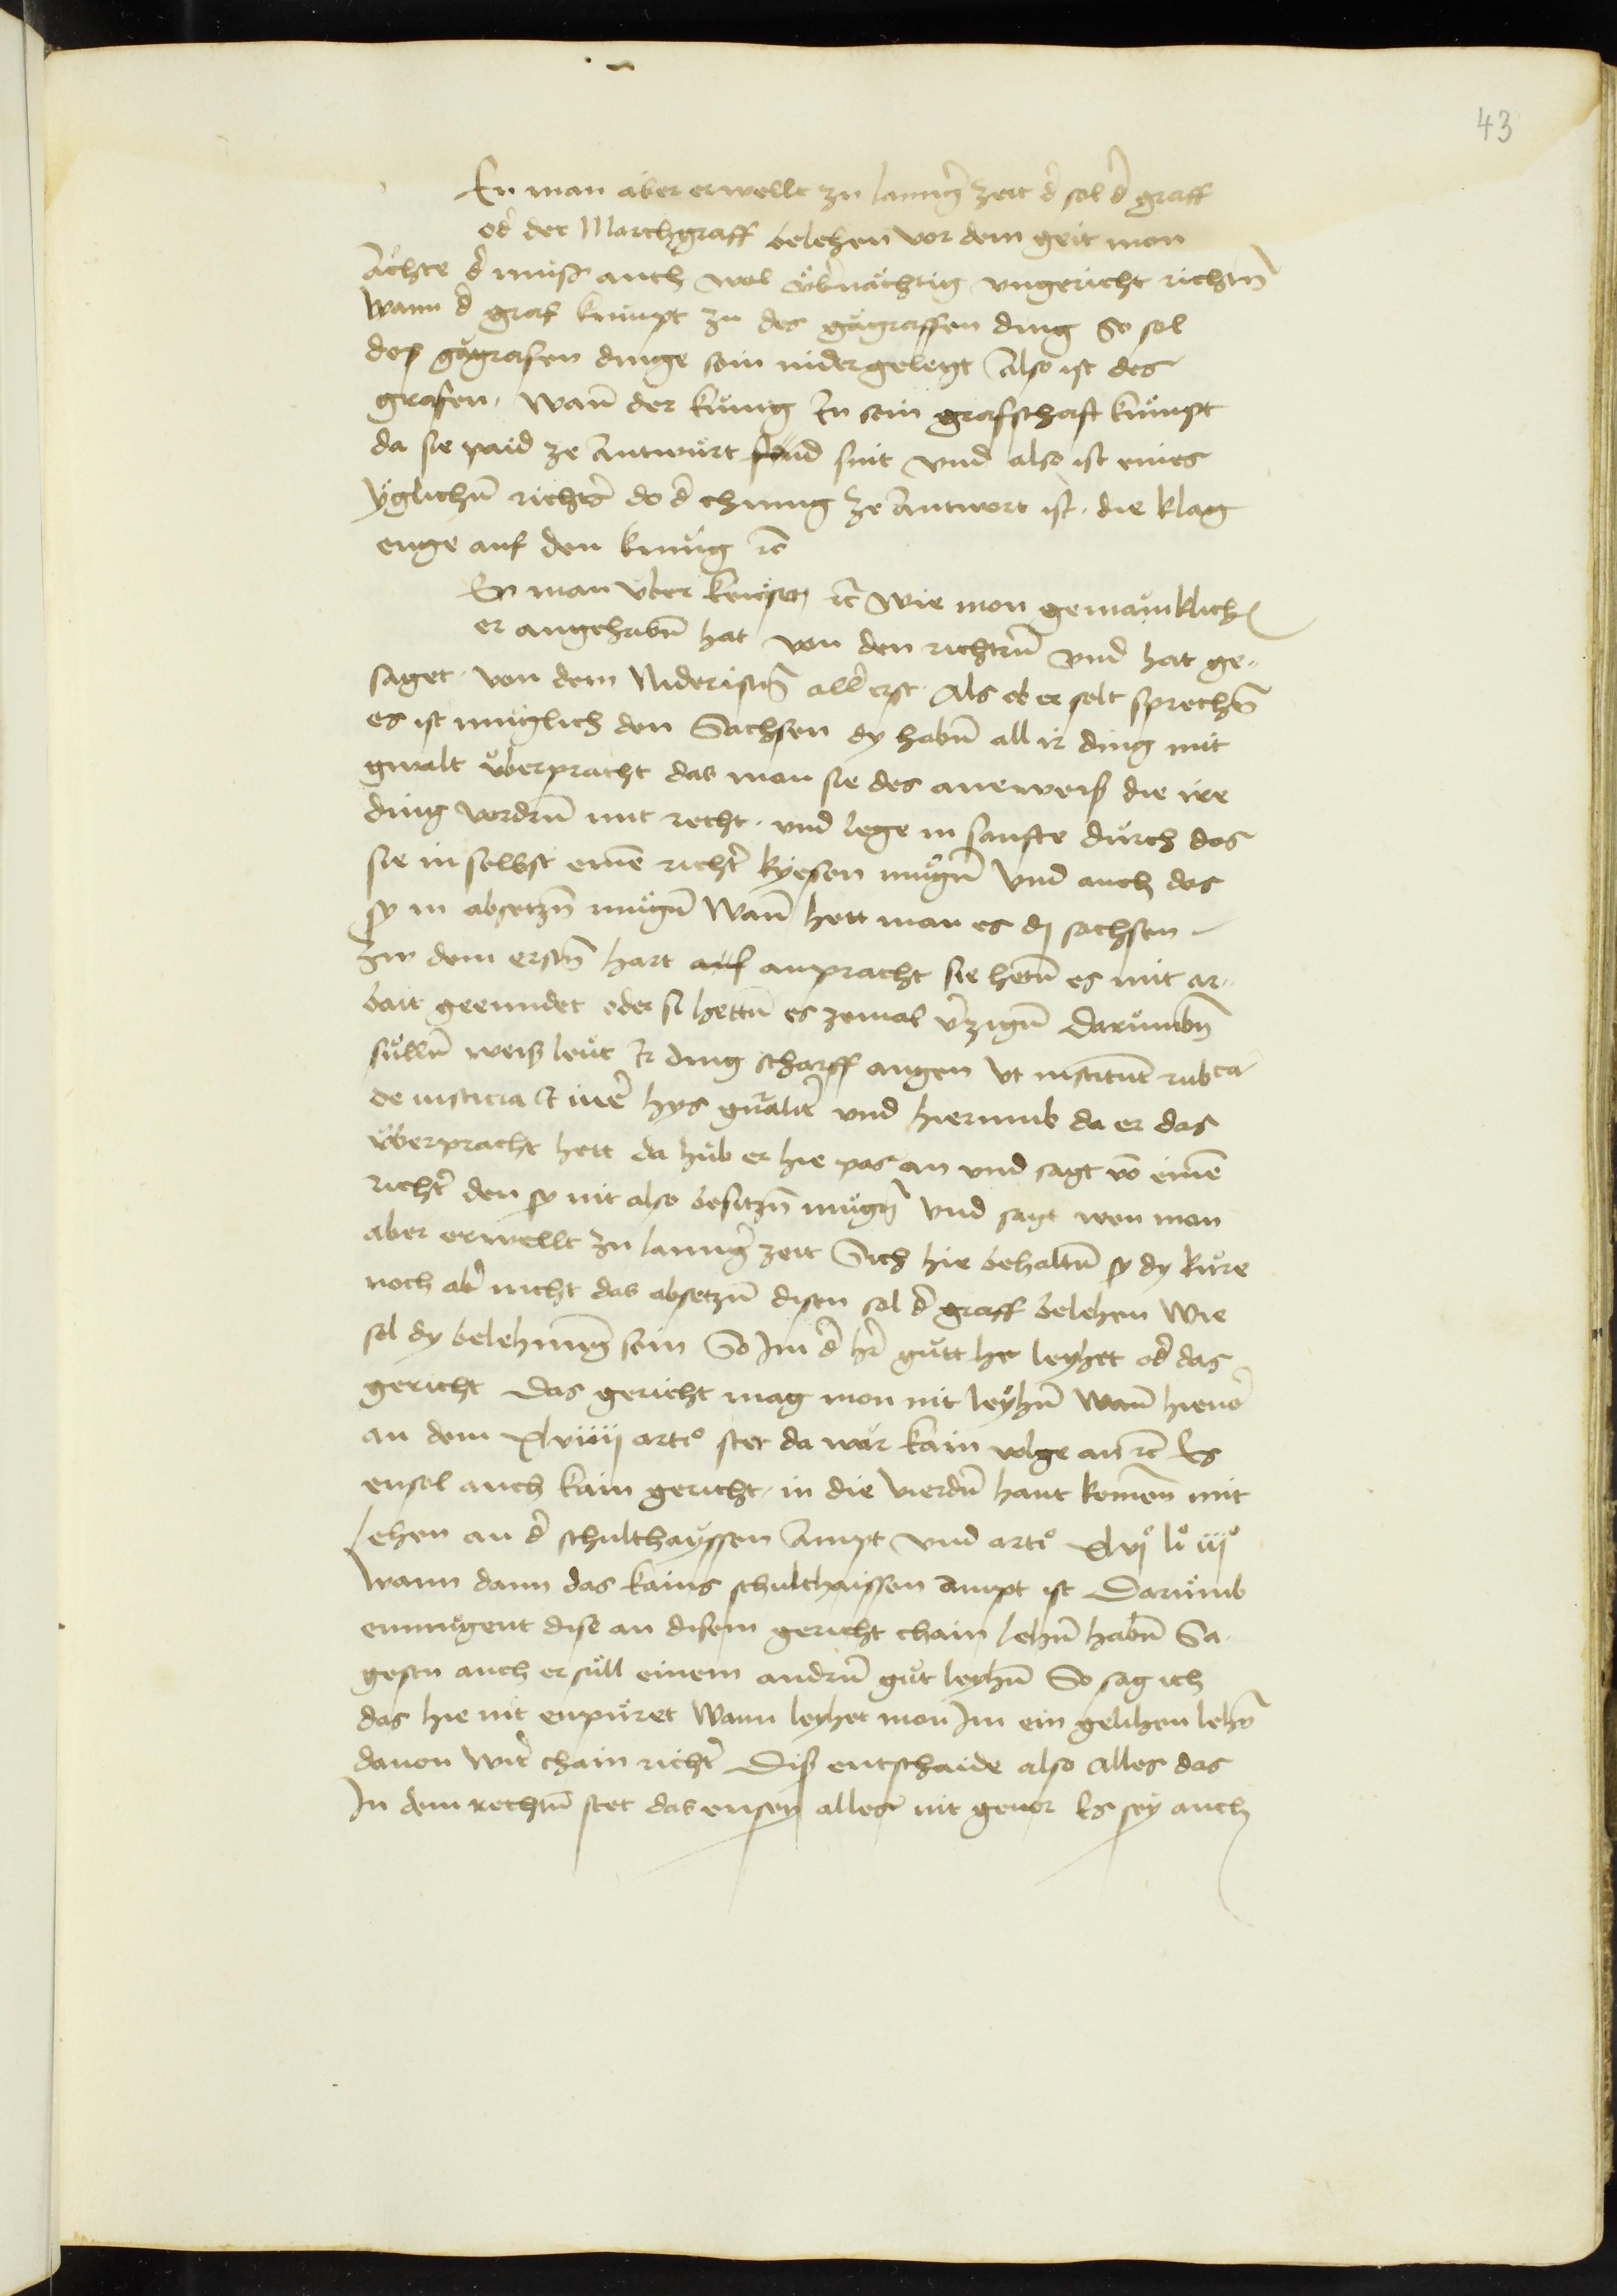 43
En man aber erwellt zu lannḡ zeit d̄ sol d̄ graff
od̄ der Marchgraff belehen vor dem geit mon
Achte d̄ muß auch wol vͤbnächtig vngericht richtn̄
wann d̄ graf kumpt zu des gögraffen ding So sol
des gögrafen dinge sein nidergelegt Also ist des
grafen. Wan̄ der kunig In sein grafschaft kumpt
da sie paid ze Antwurt sind sint vnd also ist eines
yglichn̄ richtr̄ do d̄ chunig ze Antwort ist. die klag
enge auf den kunig rc̄
En man vber keusen rc̄ wie mon gemainklich
er angehabn̄ hat von den richtrn̄ vnd hat ge-
saget. von dem Nideristn̄ all̄ erst. Als ob er solt sprechn̄
es ist muglich den Sachsen dy habn̄ all ir ding mit
gwalt vͤberpracht das man sie des anweiß die ire
ding vordrn̄ mit recht. vnd lege in sanfte durch das
sie in selbst eine̅ richt̄ kyesen mugn̄ vnd auch das
sy in absetzn̄ mugn̄ Wan̄ hett man es dj sachsen
Zw dem erstn̄ hart auf anpracht sie hetn̄ es mit ar-
bait geenndet oder si hettn̄ es zemal v̄zign̄ Darumbn̄
sulln̄ weis leut Ir ding scharff angen vt institut̄ rubca
de iusticia et iure̅ hys gn̄alit̄ vnd hierumb da er das
vͤberpracht hett da hub er hie pas an vnd sagt vō eine̅
richt̄ den sy nit also besitzn̄ mugn̄ vnd sagt wen man
aber erwellt zu lannḡ zeit Sich hie behaltn̄ sy dy kure
noch ab̄ nicht das absetzn̄ disen sol d̄ graff belehen Wie
sol dy belehnung sein So Im d̄ hr̄ gutt he leyhet od̄ das
gericht Das gericht mag mon nit leyhn̄ Wan̄ hieuor̄
an dem xlviiij artᵒ stet da war kain volge an rc̄ Es
ensol auch kain gericht. in die vierdn̄ hant komen̄ mit
Lehen an d̄ schulthayssen Ampt vnd artᵒ xlvjᵒ liᵒ iijᵒ
Wann dann das kains schulthaissen Ampt ist Darumb
enmugent dise an disem gericht chain lehn̄ habn̄ Sa-
gestu auch er sull einem andrn̄ gut leyhn̄ So sag ich
das hie nit enpuret Wann leyhet mon Im ein gelihen lehn̄
dauon wirt̄ chain richt̄ Diß entschaide also Alles das
In dem rechtn̄ stet das ensey alles nit geuor Es sey auch